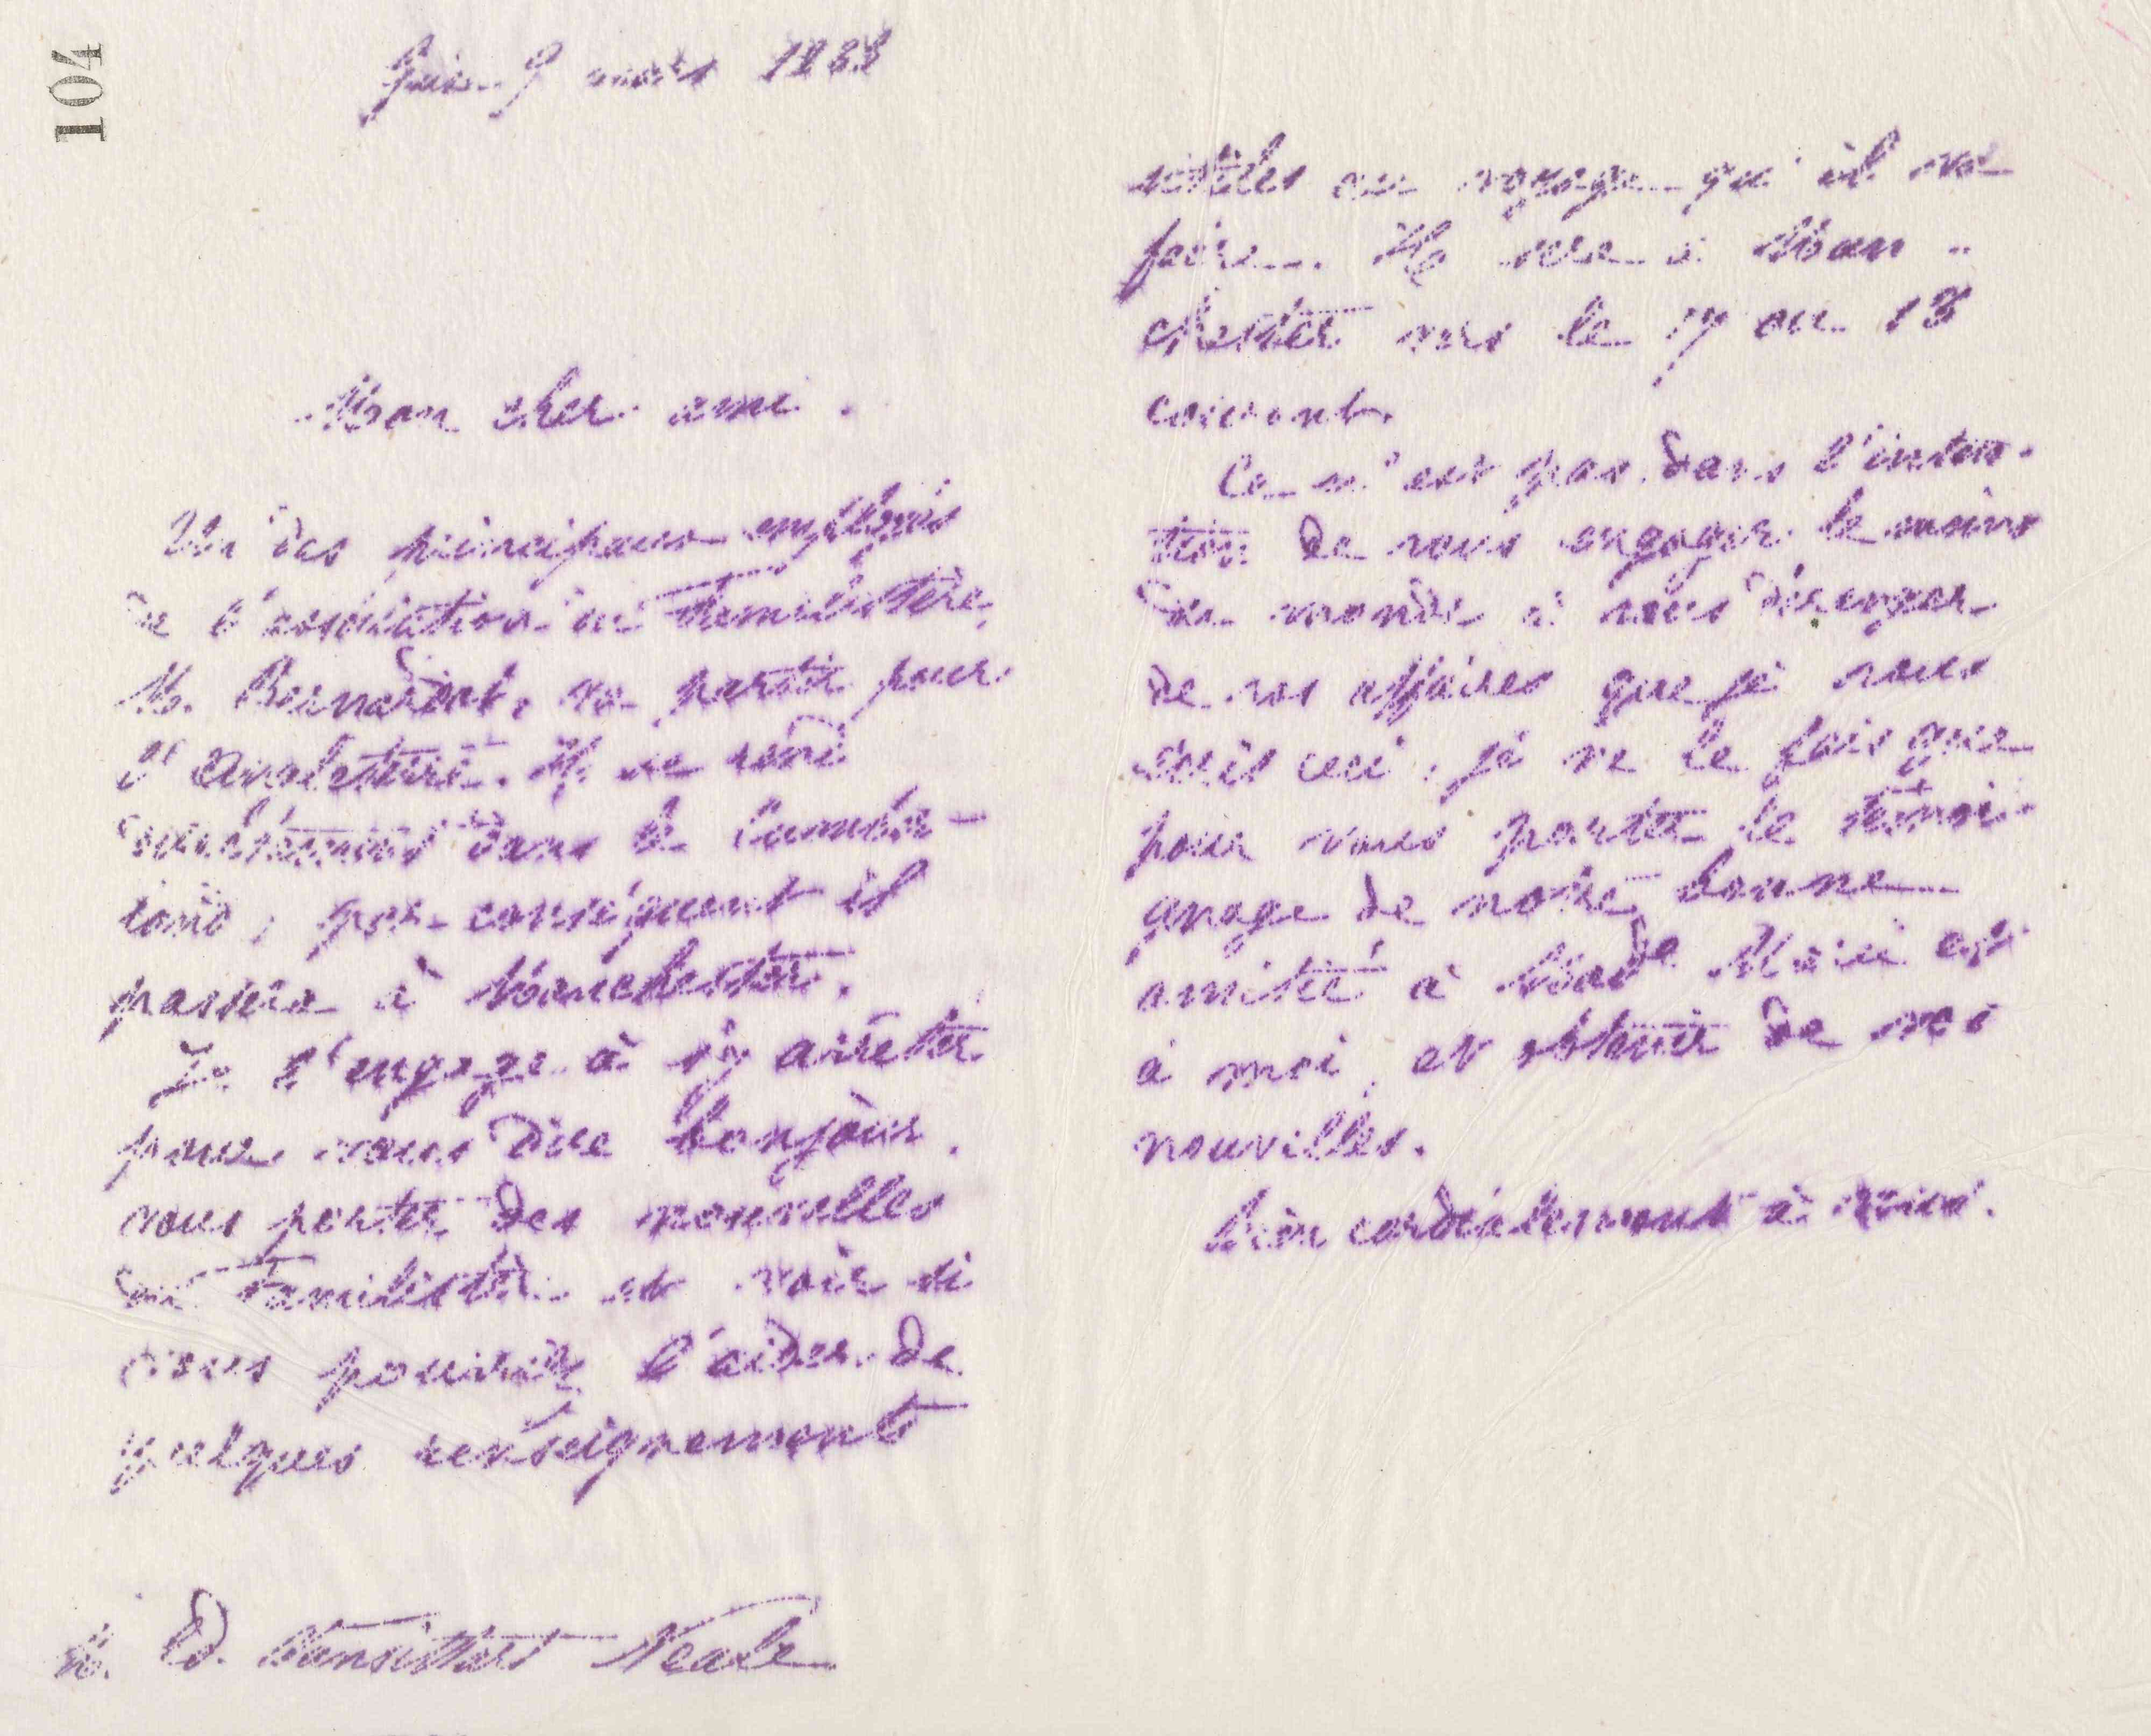 104
Guise 9 mars 1888
Mon cher ami.
Un des principaux employés
de l'association du Familistère,
M. Bernardot, va partir pour
l'Angleterre. Il se rend
dans le Cumber-
land, par conséquent il
passera à Manchester.
Je l'engage à s'y arrêter
pour vous dire bonjour,
vous porter des nouvelles
du Familistère et voir si
vous pourriez l'aider de
quelques renseignements
M. Ed. Vansittart Neale
utiles au voyage qu'il va
faire. Il sera à Man-
chester vers le 17 ou 18
courant.
Ce n'est pas dans l'inten-
tion de vous engager le moins
du monde à vous déranger
de vos affaires que je vous
écris ceci, je ne le fais que
pour vous porter le témoi-
gnage de notre bonne
amitié à Made Marie et
à moi, et obtenir de vos
nouvelles.
Bien cordialement à vous.